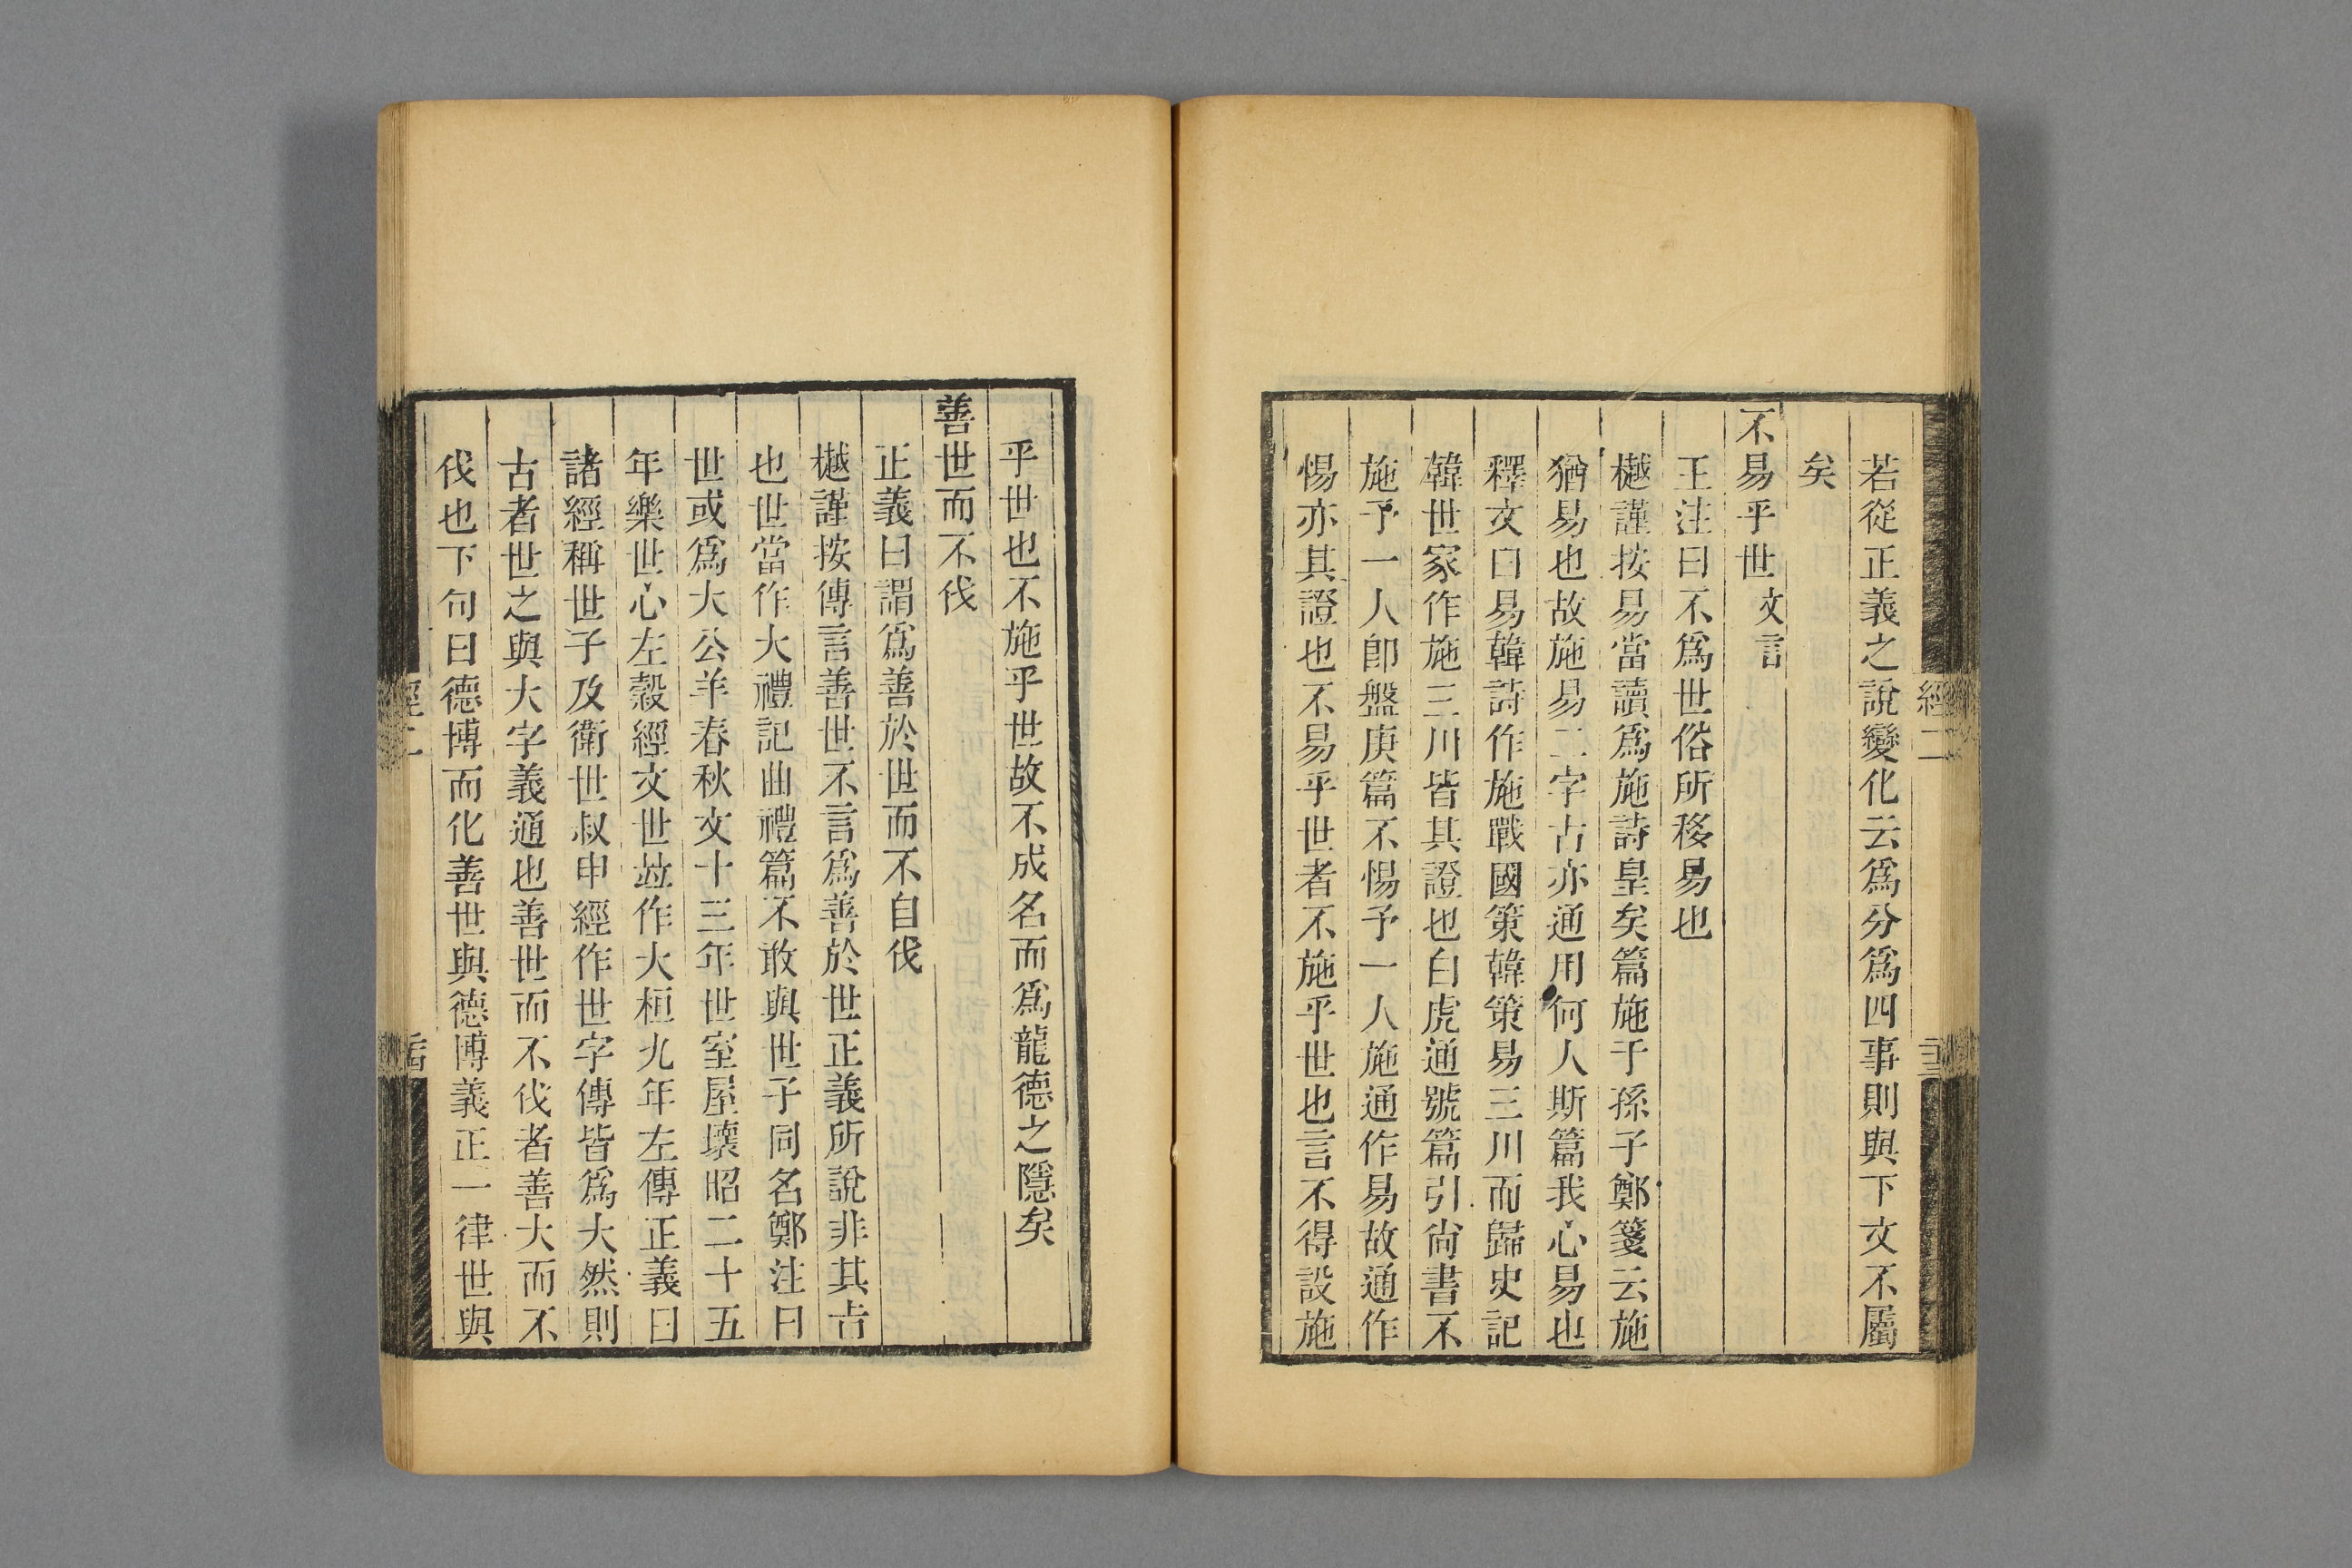 若從正義之說變化云爲分爲四事則與下文不屬
矣
不易乎世文言
王注曰不爲世俗所移易也
樾謹按易當讀爲施詩皇矣篇施于孫子鄭箋云施
猶易也故施易二字古亦通用何人斯篇我心易也
釋文曰易韓詩作施戰國策韓策易三川而歸史記
韓世家作施三川皆其證也白虎通號篇引尙書不
施予一人卽盤庚篇不惕予一人施通作易故通作
惕亦其證也不易乎世者不施乎世也言不得設施
乎世也不施乎世故不成名而爲龍德之隱矣
善世而不伐
正義曰謂爲善於世而不自伐
樾謹按傳言善世不言爲善於世正義所說非其旨
也世當作大禮記曲禮篇不敢與世子同名鄭注曰
世或爲大公羊春秋文十三年世室屋壞昭二十五
年樂世心左穀經文世並作大桓九年左傳正義曰
諸經稱世子及衛世叔申經作世字傳皆爲大然則
古者世之與大字義通也善世而不伐者善大而不
伐也下句曰德博而化善世與德博義正一律世與
經二
經二